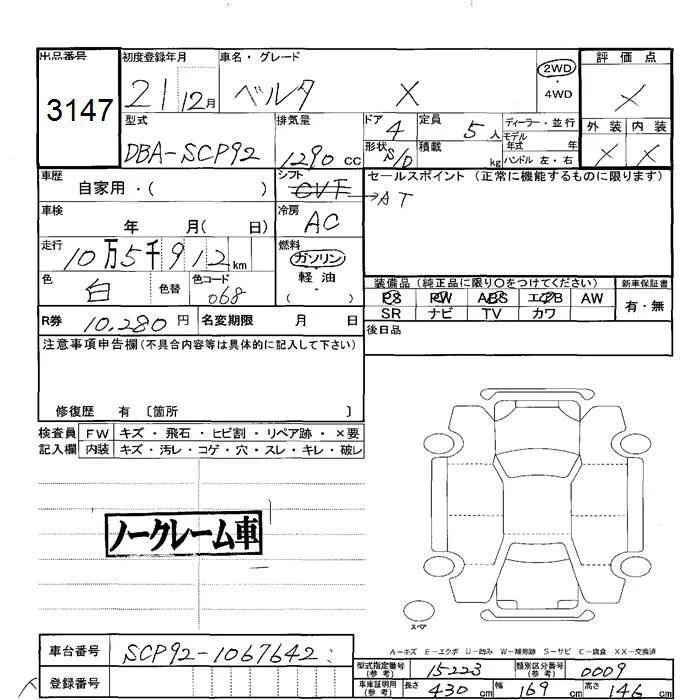 出品番号 初度登録年月 車名・グレード 2WD 評価点
3147 21 12月 ベルタ X ・4WD X
型式 排気量 ドア 4 定員 5人 ディーラー・並行 外装 内装
DBA-SCP92 1290cc 形状 S/D 積載 kg モデル年式 年式 X X
ハンドル 左・右
車歴 自家用・( ) シフト CVT→AT セールスポイント (正常に機能するものに限ります)
車検 年 月( 日) 冷房 AC
走行 10万5千912km 燃料 ガソリン
色 白 色替 色コード 068 軽油・( )
装備品 (純正品に限り○をつけてください) 新車保証書
PS PW ABS エアB AW 有・無
SR ナビ TV カワ
R券 10,280円 名変期限 月 日 後日品
注意事項申告欄(不具合内容等は具体的に記入して下さい)
修復歴 有 〔箇所 〕
検査員 FW キズ・飛石・ヒビ割・リペア跡・×要
記入欄 内装 キズ・汚レ・コゲ・穴・スレ・キレ・破レ
ノークレーム車
スペア
A−キズ E−エクボ U−凹み W−補修跡 S−サビ C−腐食 XX−交換済
車台番号 SCP92-1067642
型式指定番号(参考) 15223 類別区分番号(参考) 0009
登録番号
車庫証明用(参考) 長さ 430cm 幅 169cm 高さ 146cm